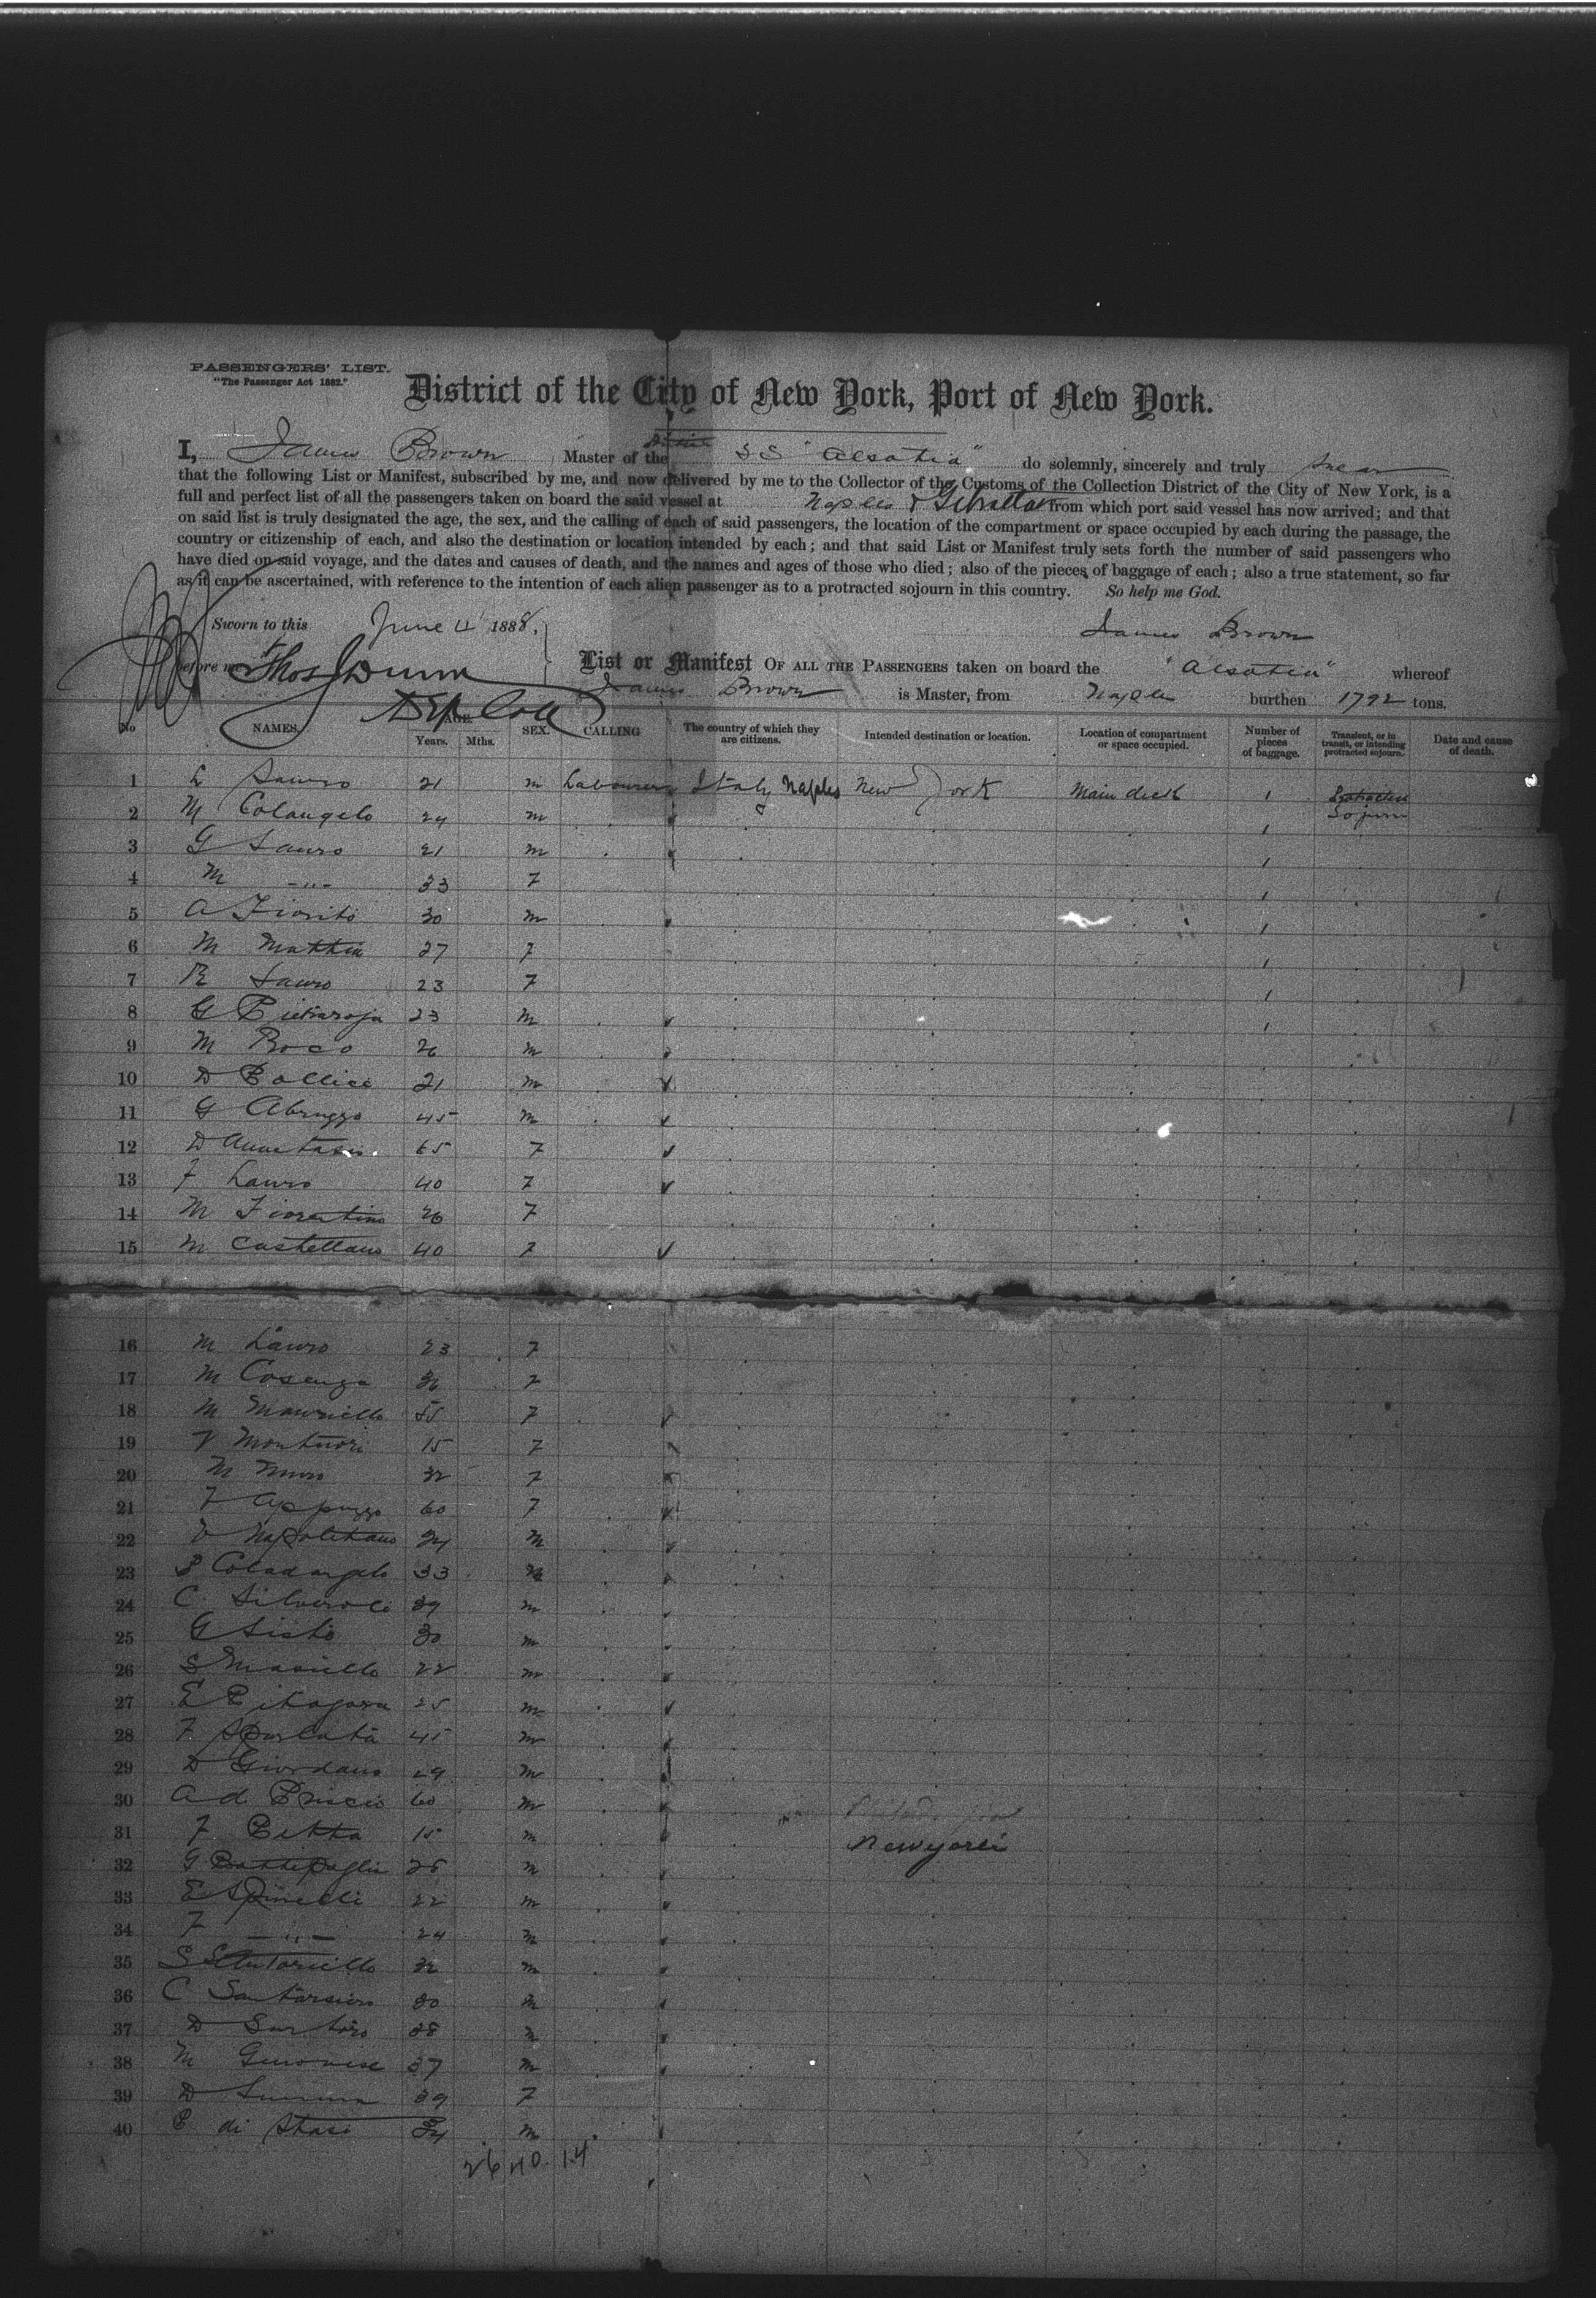 PASSENGERS' LIST.
"The Passenger Act 1882."
District of the City of New York, Port of New York.
I, James Brown Master of the SS "Alsatia" do solemnly, sincerely and truly swear
that the following List or Manifest, subscribed by me, and now delivered by me to the Collector of the Customs of the Collection District of the City of New York, is a
full and perfect list of all the passengers taken on board the said vessel at Naples & Gibraltar from which port said vessel has now arrived; and that
on said list is truly designated the age, the sex, and the calling of each of said passengers, the location of the compartment or space occupied by each during the passage, the
country or citizenship of each, and also the destination or location intended by each; and that said List or Manifest truly sets forth the number of said passengers who
have died on said voyage, and the dates and causes of death, and the names and ages of those who died; also of the pieces of baggage of each; also a true statement, so far
as it can be ascertained, with reference to the intention of each alien passenger as to a protracted sojourn in this country. So help me God.
Sworn to this June 4 1888, James Brown
before me Thos J Dunn
Dep Coll
List or Manifest OF ALL THE PASSENGERS taken on board the "Alsatia" whereof
James Brown is Master, from Naples burthen 1792 tons.
No NAMES. AGE Years. Mths. SEX. CALLING The country of which they are citizens. Intended destination or location. Location of compartment or space occupied. Number of pieces of baggage. Transient, or in transit, or intending protracted sojourn. Date and cause of death.
1 L Sauro 21 m Labourer Italy Naples New York Main deck 1 Protracted Sojurn
2 M Colangelo 24 m 1
3 G Sauro 21 m 1
4 M -"- 33 F 1
5 A Fiorito 30 m 1
6 M Mattia 27 F 1
7 R Sauro 23 F 1
8 G Pietraroja 23 m 1
9 M Roco 26 m
10 D Pollice 21 m
11 G Abruzzo 45 m
12 D Anastasio 65 F
13 F Lauro 40 F
14 M Fiorentino 26 F
15 M Castellano 40 F
16 M Lauro 23 F
17 M Cosenza 36 F
18 M Mauriello 55 F
19 V Montuori 15 F
20 M 32 F
21 F Appuzzo 60 F
22 V Napolitano 24 m
23 P Coladangelo 33 m
24 C. Silveroli 39 m
25 G Sisto 30 m
26 S Masiello 22 m
27 E Pitagora 25 m
28 F 45 m
29 D Giordano 29 m
30 A d Priscio 60 m
31 F Petta 15 m New York
32 G Battipaglia 25 m
33 E Spinelli 22 m
34 F -"- 24 m
35 S 32 m
36 C Santorsiero 30 m
37 D Sartoro 38 m
38 M Genovese 37 m
39 D Summa 39 F
40 P di Stasi 34 m
26 40 14